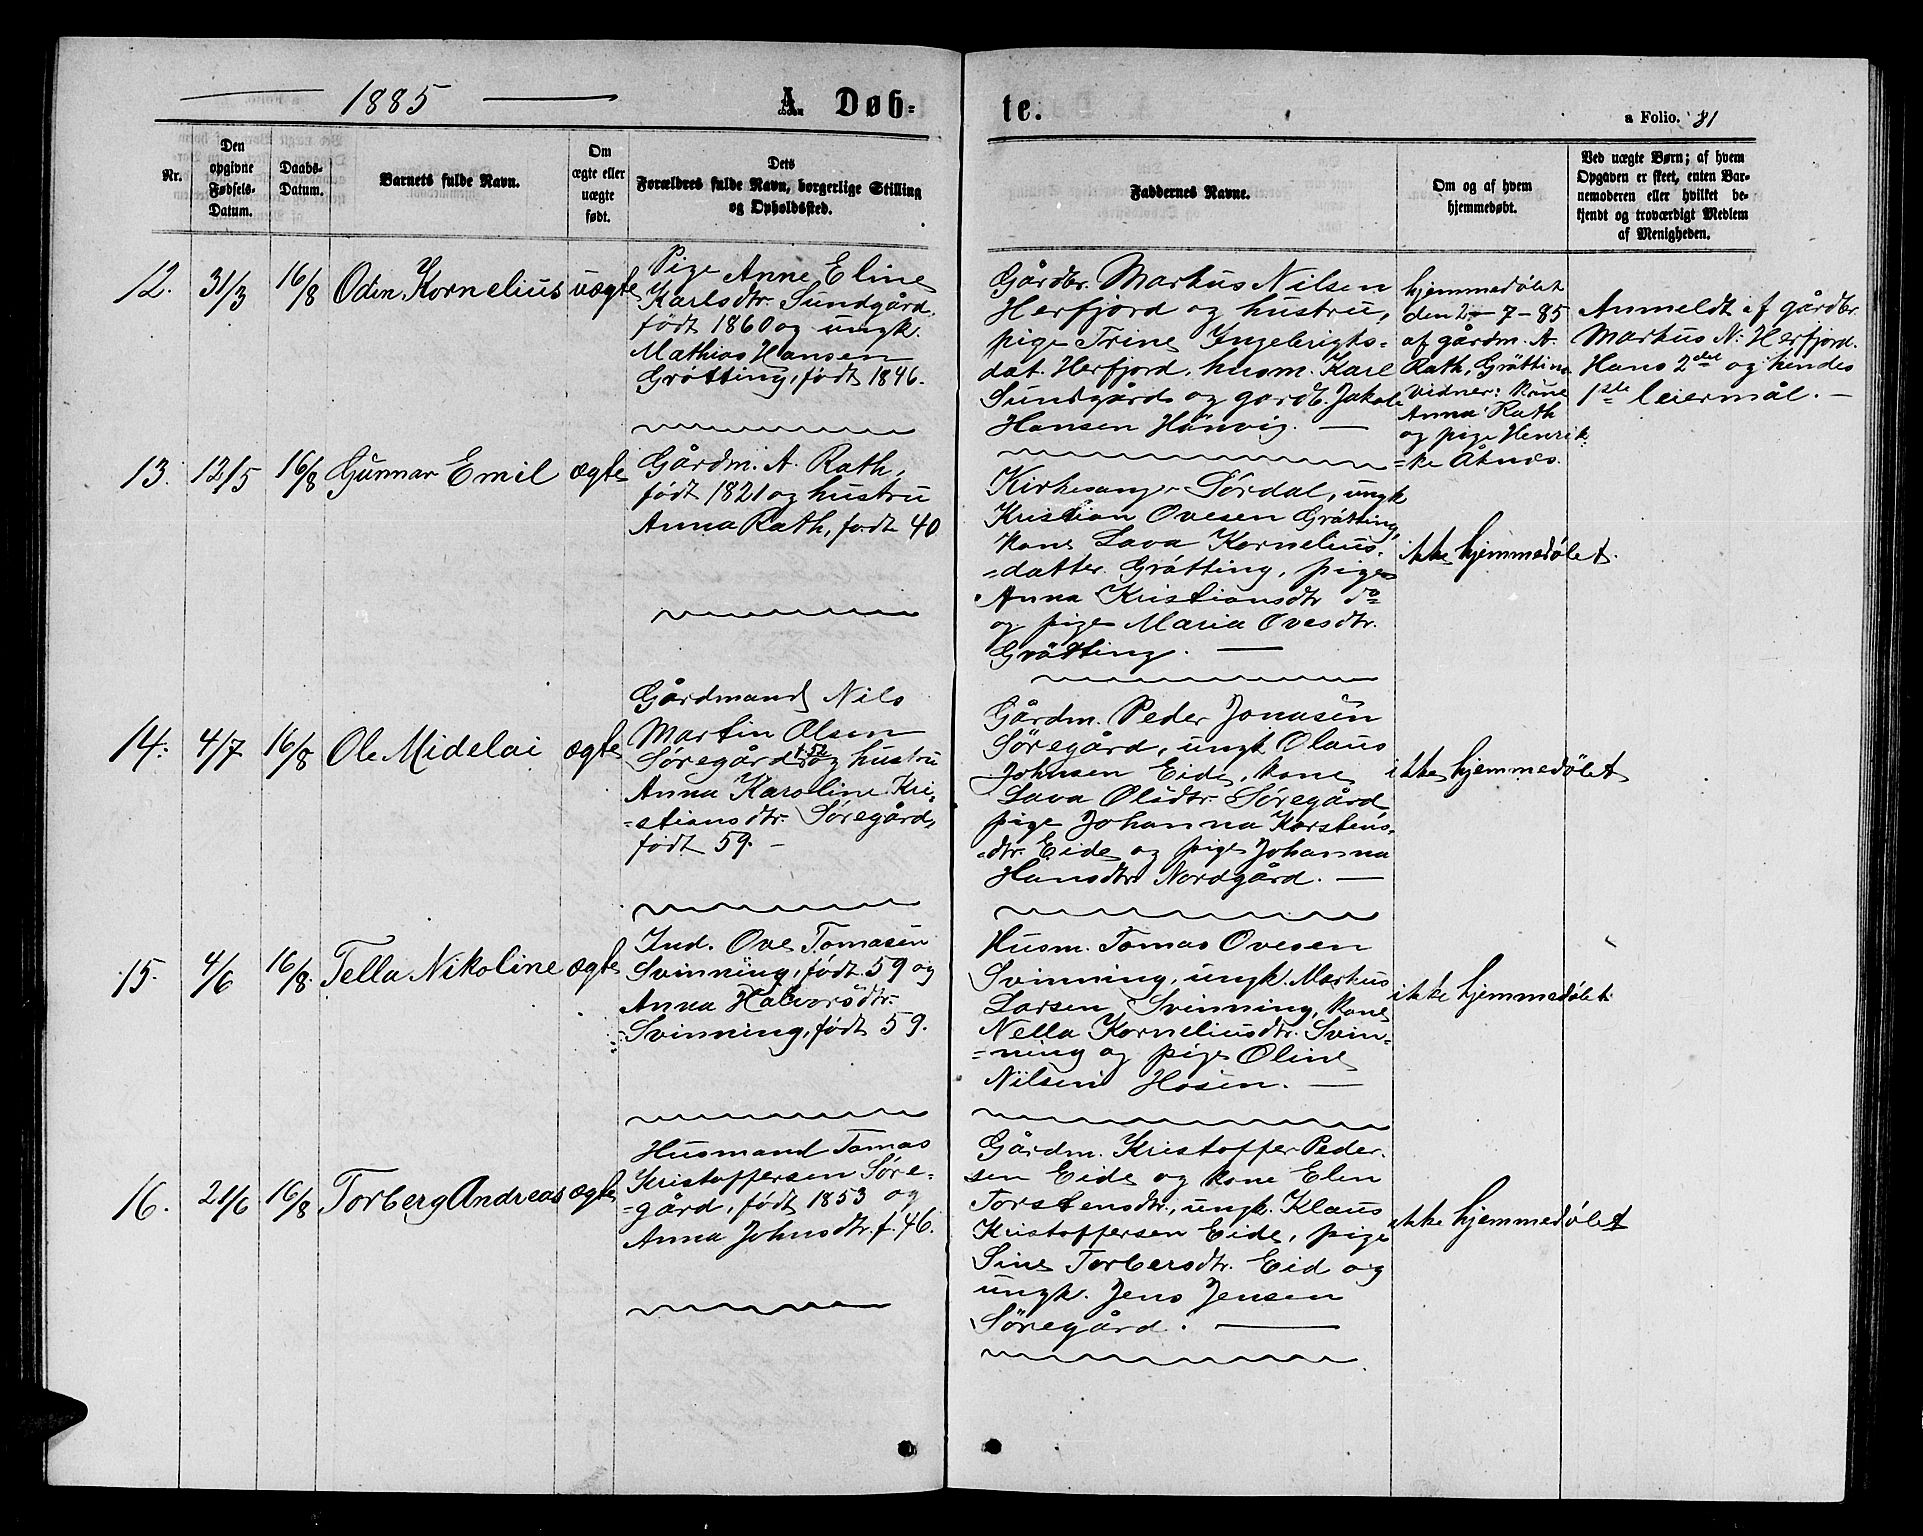 1885
A. Døb-
te.
a Folio. 81
Nr.
Den opgivne Fødsels-Datum.
Daabs-Datum.
Barnets fulde Navn.
Om ægte eller uægte født.
Dets Forældres fulde Navn, borgerlige Stilling og Opholdssted.
Faddernes Navne.
Om og af hvem hjemmedøbt.
Ved uægte Børn; af hvem
Opgaven er skeet, enten Bar-
nemoderen eller hvilket be-
kjendt og troværdigt Medlem
af Menigheden.
12. 31/3 16/8 Odin Kornelius uægte
Pige Anne Eline
Karlsdtr. Sundgård,
født 1860 og ungk.
Mathias Hansen
Gråtting, født 1846.
Gårdbr. Markus Nilsen
Herfjord og hustru,
pige Trine Ingebrigts-
dat. Herfjord, husm. Karl
Sundgård og gardb. Jakob
Hansen Hånvig. —
hjemmedøbt
den 2 - 7 - 85
af gårdm. A.
Rath, Gråtting
Vidner: kone
Anna Rath
og pige Henrik-
=ke Åknes.
Anmeldt af gårdbr.
Markus N. Herfjord.
Hans 2det og hendes
1ste leiermål. —
13. 12/5 16/8 Gunnar Emil ægte
Gårdm. A. Rath,
født 1821 og hustru
Anna Rath, født 40
Kirkesanger Sørdal, ungk
Kristian Ovesen Gråtting,
kone Lava Kornelius-
=datter Gråtting, pige
Anna Kristiansdtr do
og pige Maria Ovesdtr.
Gråtting. —
ikke hjemmedøbt.
14. 4/7 16/8 Ole Midelai ægte
Gårdmand Nils
Martin Olsen
Søregård f. 52 og hustru
Anna Karoline Kri-
=stiansdtr. Søregård,
født 59. —
Gårdm. Peder Jonasen
Søregård, ungk Olaus
Johnsen Eide, kone
Lava Olsdtr. Søregård
pige Johanna Karstens-
=dtr. Eide og pige Johanna
Hansdtr Nordgård. —
ikke hjemmedøbt
15. 4/6 16/8. Tella Nikoline ægte
Ind. Ove Tomasen
Svinning, født 59 og
Anna Halvorsdtr.
Svinning, født 59.
Husm. Tomas Ovesen
Svinning, ungk. Markus
Larsen Svinning, kone
Nella Korneliusdtr. Svin-
=ning og pige Oline
Nilsen Hosen. —
ikke hjemmedøbt
16. 21/6 16/8 Torberg Andreas ægte
Husmand Tomas
Kristoffersen Søre-
=gård, født 1853 og
Anna Johnsdtr. f. 46.
Gårdm. Kristoffer Peder-
sen Eide og kone Elen
Torstensdtr., ungk. Klaus
Kristoffersen Eide, pige
Sine Torbersdtr. Eid og
ungk. Jens Jensen
Søregård. —
ikke hjemmedøbt